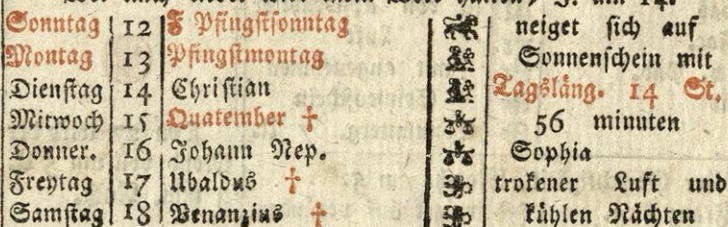 Sonntag 12 F Pfingstsonntag neiget sich auf
Montag 13 Pfingstmontag Sonnenschein mit
Dienstag 14 Christian Tagsläng. 14 St.
Mitwoch 15 Quatember † 56 minuten
Donner. 16 Johann Nep. Sophia
Freytag 17 Ubaldus † trokener Luft und
Samstag 18 Venanzius † kühlen Nächten